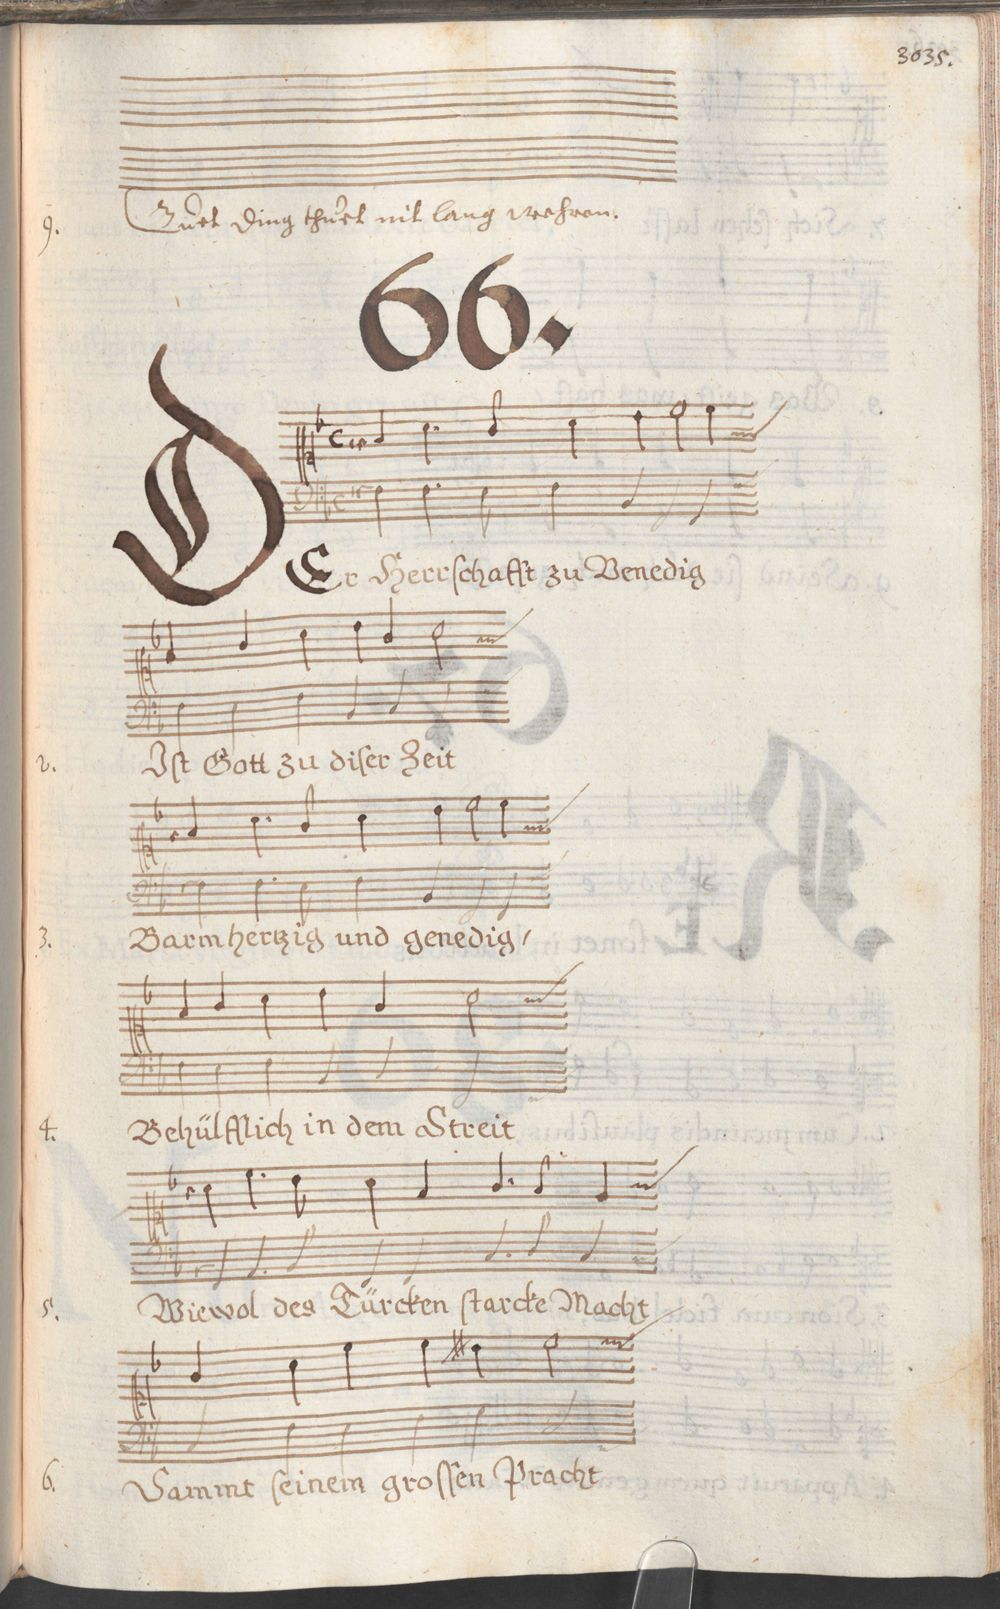 3035.
9. Guet ding thuet nit lang wehren.
66.
DEr Herrschafft zu Venedig
2. Ist Gott zu diser Zeit
3. Barmhertzig und genedig/
4. Behülfflich in dem Streit
5. Wiewol des Türcken starcke Macht
6. Sammt seinem grossen Pracht